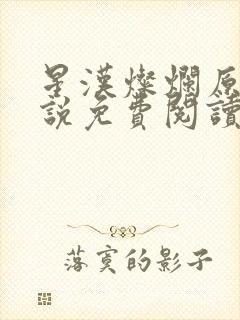 星漢燦爛原
說免費閱讀
落寞的影子